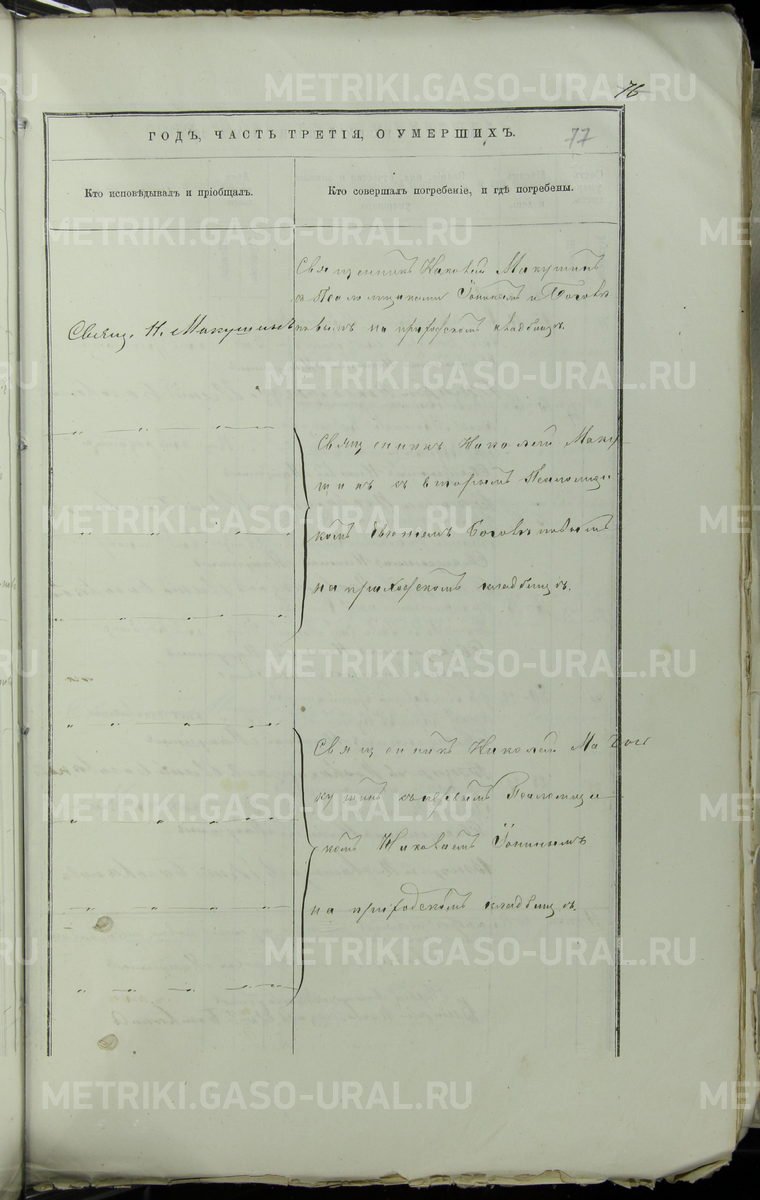 METRIKI.GASO-URAL.RU
76
ГОДЪ, ЧАСТЬ ТРЕТІЯ, О УМЕРШИХЪ.
77
Кто исповѣдывалъ и пріобщалъ.
Кто совершалъ погребеніе, и гдѣ погребены.
Священникъ Николай Макушинъ
съ Псаломщиками Іонинымъ и
на приходскомъ кладбищѣ.
Свящ. Н. Макушинъ
Священникъ Николай Маку-
шинъ съ вторымъ Псаломщи
комъ
на приходскомъ кладбищѣ.
Священникъ Николай Ма
кушинъ съ первымъ Псаломщи-
комъ Николаемъ Іонинымъ
на приходскомъ кладбищѣ.
METRIKI.GASO-URAL.RU